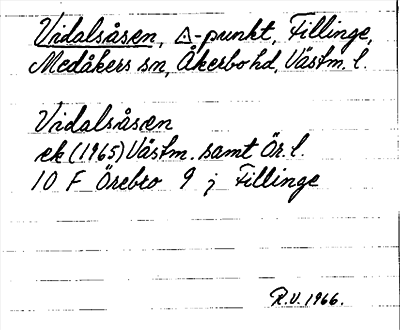 Vidalsåsen, △-punkt, Fillinge,
Medåkers sn, Åkerbo hd, Västm. l.
Vidalsåsen
ek (1965) Västm. samt Ör. l.
10 F Örebro 9 j Fillinge
R.V. 1966.